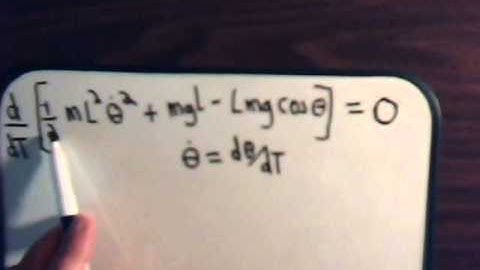 d/dT [1/2 mL² θ̇² + mgL - Lmg cos θ] = 0
θ̇ = dθ/dT